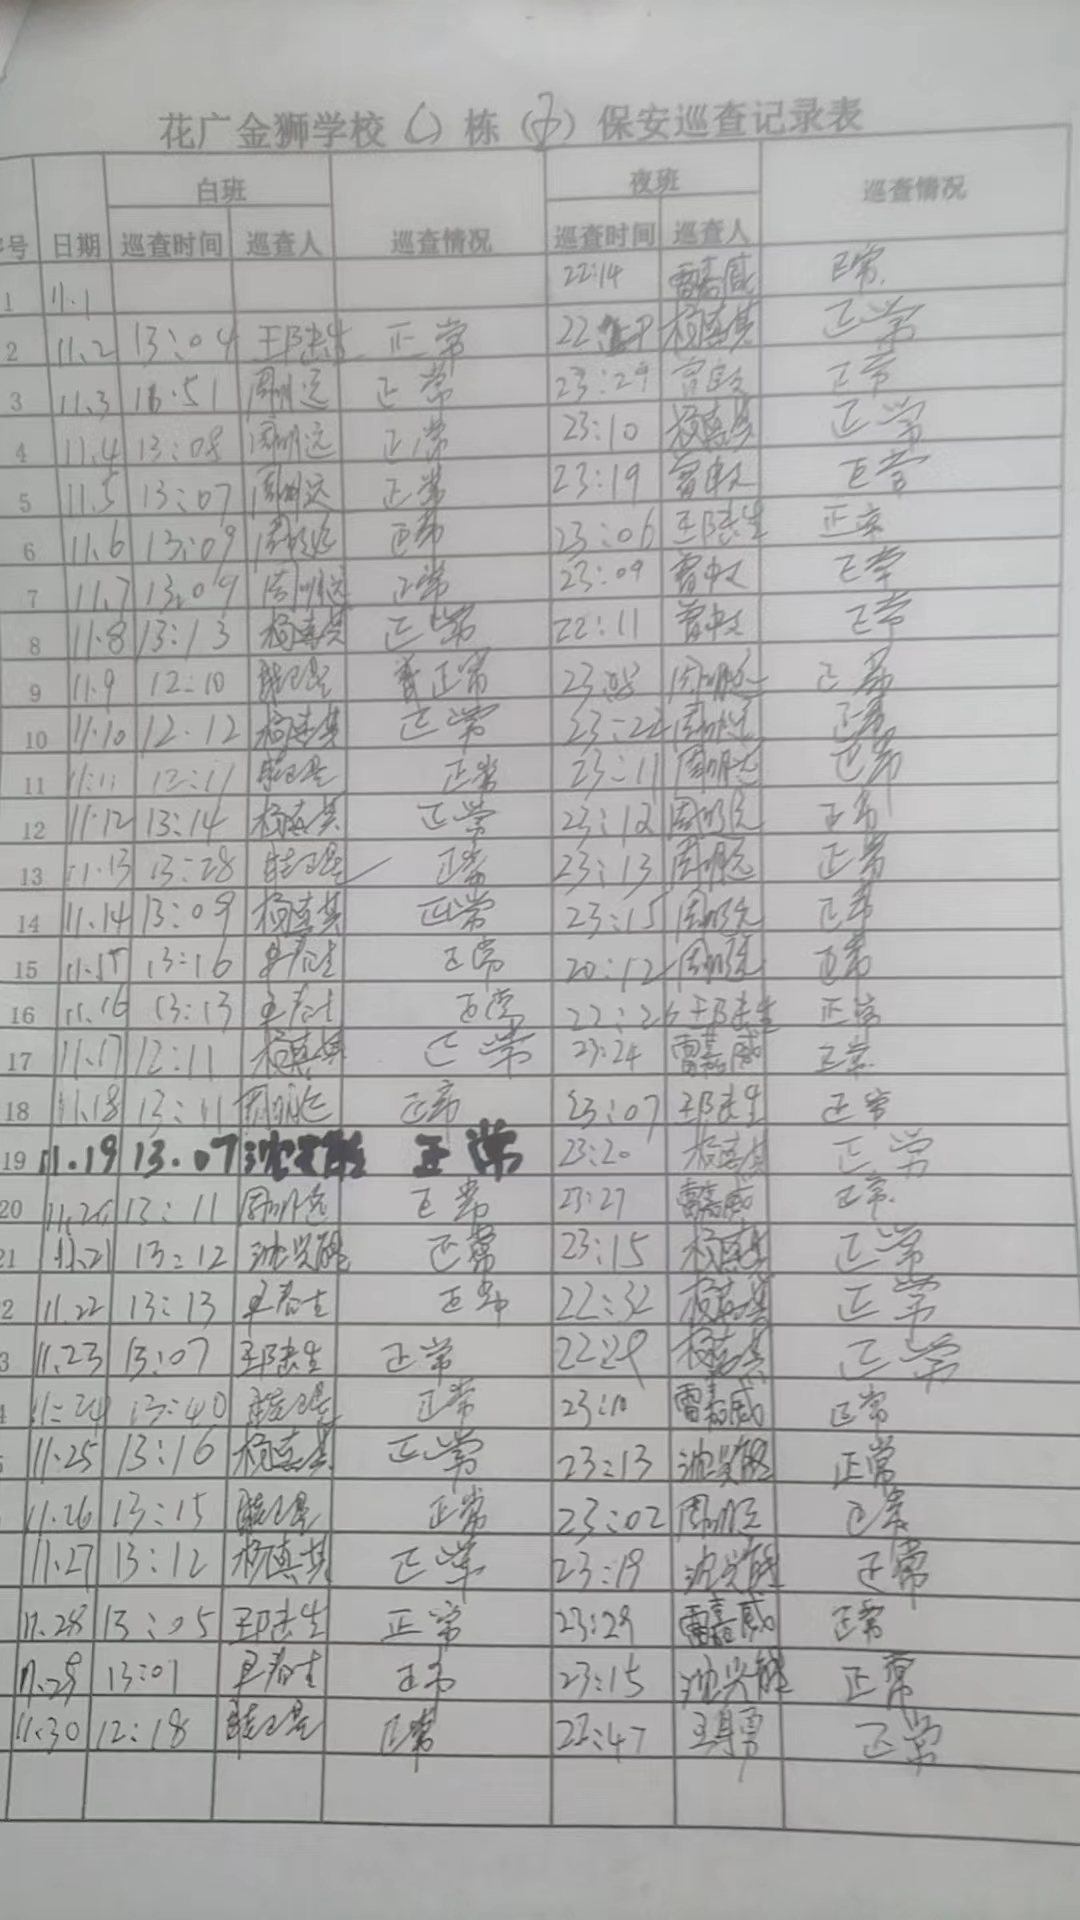 花广金狮学校（ ）栋（ ）保安巡查记录表
号 日期 白班 巡查情况 夜班 巡查情况
巡查时间 巡查人 巡查时间 巡查人
1 11.1 22:14 雷嘉威 正常.
2 11.2 13:04 正常 22: 杨真其 正常
3 11.3 16:51 周明远 正常 23:29 正常
4 11.4 13:08 周明远 正常 23:10 杨真其 正常
5 11.5 13:07 周明远 正常 23:19 正常
6 11.6 13:09 周明远 正常 23:06 正常
7 11.7 13:09 周明远 正常 23:09 正常
8 11.8 13:13 杨真其 正常 22:11 正常
9 11.9 12:10 正常 23: 周明远 正常
10 11.10 12.12 杨真其 正常 23:22 周明远 正常
11 11.11 12:11 正常 23:11 周明远 正常
12 11.12 13:14 杨真其 正常 23:12 周明远 正常
13 11.13 13:28 正常 23:13 周明远 正常
14 11.14 13:09 杨真其 正常 23:15 周明远 正常
15 11.15 13:16 正常 20:12 周明远 正常
16 11.16 13:13 正常 22:26 正常
17 11.17 12:11 杨真其 正常 23:24 雷嘉威 正常.
18 11.18 13:11 周明远 正常 23:07 正常
19 11.19 13.07 沈兴能 正常 23:20 杨真其 正常
20 11.20 13:11 周明远 正常 23:27 雷嘉威 正常.
21 11.21 13:12 沈兴能 正常 23:15 杨真其 正常
2 11.22 13:13 正常 22:32 杨真其 正常
3 11.23 13:07 正常 22:29 杨真其 正常
4 11.24 13:40 正常 23:10 雷嘉威 正常
11.25 13:16 杨真其 正常 23:13 沈兴能 正常
11.26 13:15 正常 23:02 周明远 正常
11.27 13:12 杨真其 正常 23:19 沈兴能 正常
11.28 13:05 正常 23:29 雷嘉威 正常
11.29 13:07 正常 23:15 沈兴能 正常
11.30 12:18 正常 22:47 正常